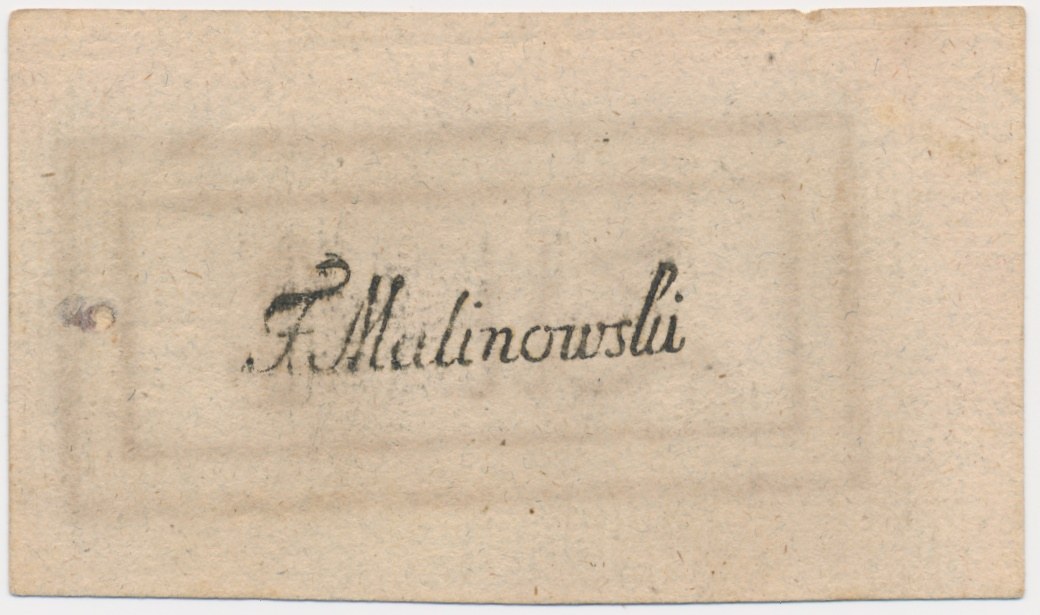 F Malinowski